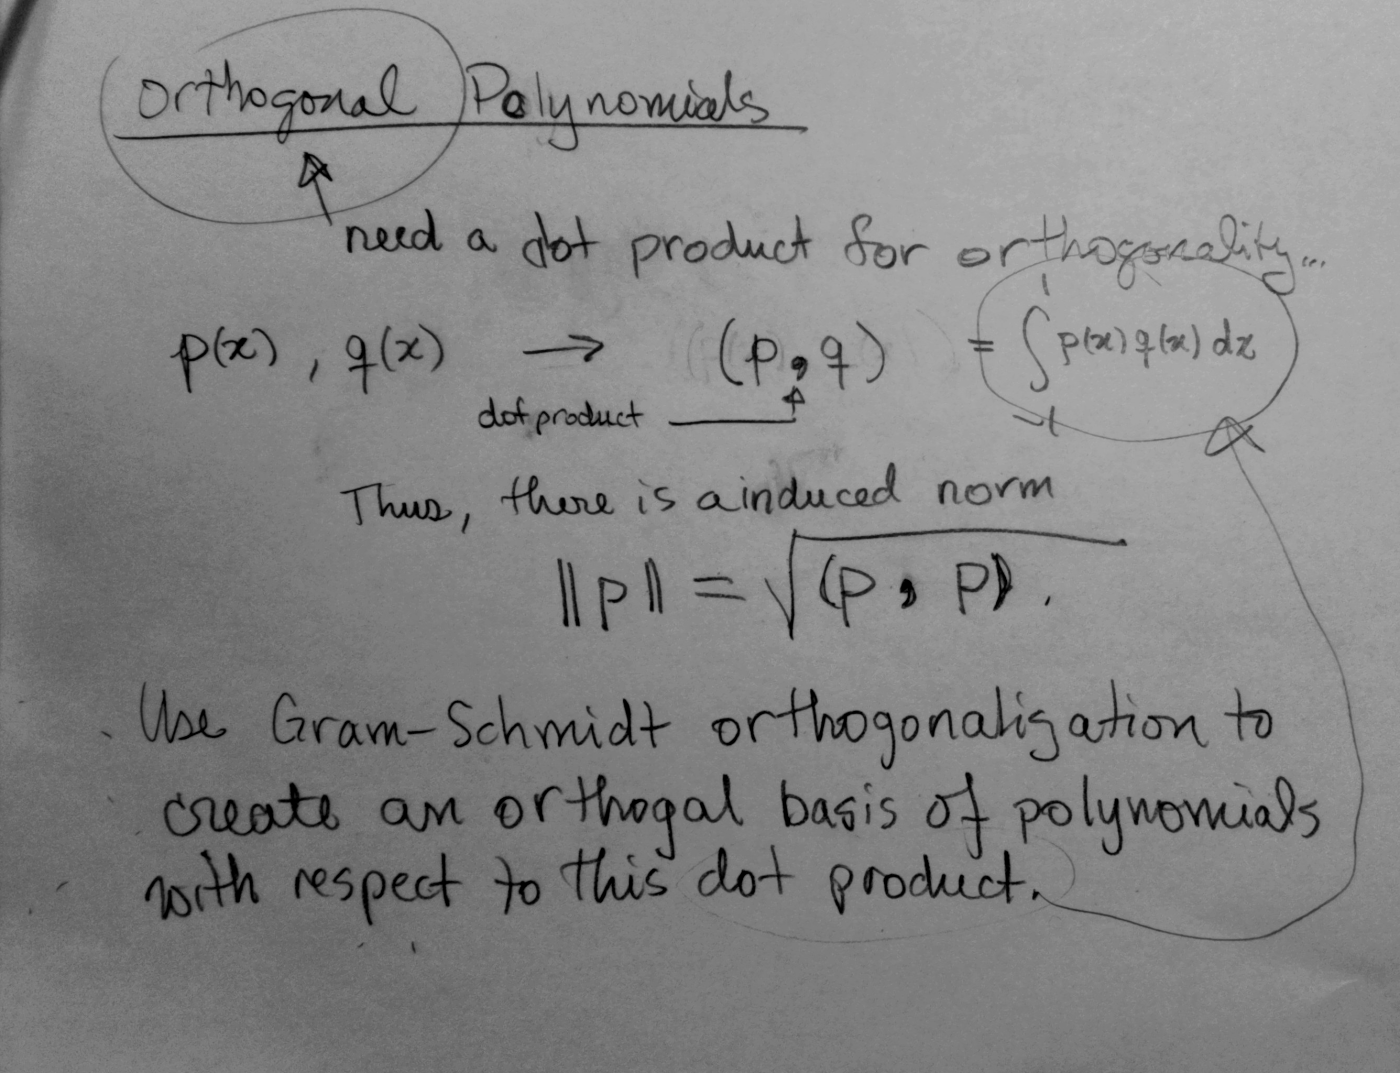 Orthogonal Polynomials
need a dot product for orthogonality...
p(x), q(x) → (p, q) = ∫₋₁¹ p(x) q(x) dx
dot product
Thus, there is a induced norm
||p|| = √(p, p).
Use Gram-Schmidt orthogonalization to
create an orthogal basis of polynomials
with respect to this dot product.